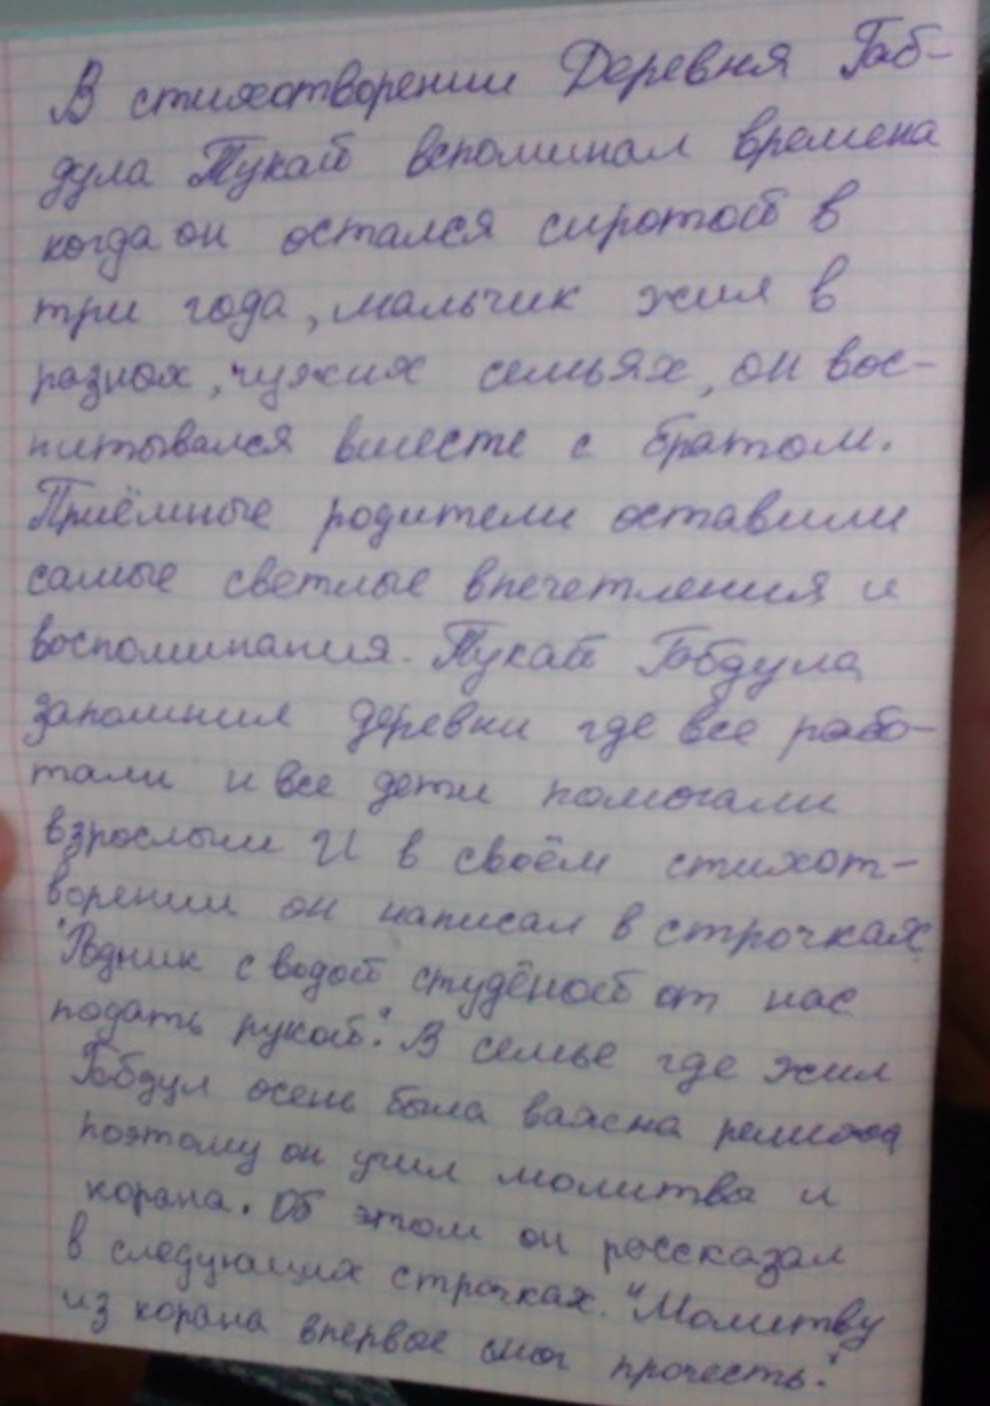 В стихотворении Деревня Габ-
дула Тукай вспоминал времена
когда он остался сиротой в
три года, мальчик жил в
разных, чужих семьях, он вос-
питывался вместе с братом.
Приёмные родители оставили
самые светлые впечетления и
воспоминания. Тукай Габдула
запомнил деревни где все рабо-
тали и все дети помогали
взрослым И в своём стихот-
ворении он написал в строчках
"Родник с водой студёной от нас
подать рукой." В семье где жил
Габдул осень была важна религия
поэтому он учил молитвы и
корана. Об этом он россказал
в следующих строчках. "Молитву
из корана впервые смог прочесть."